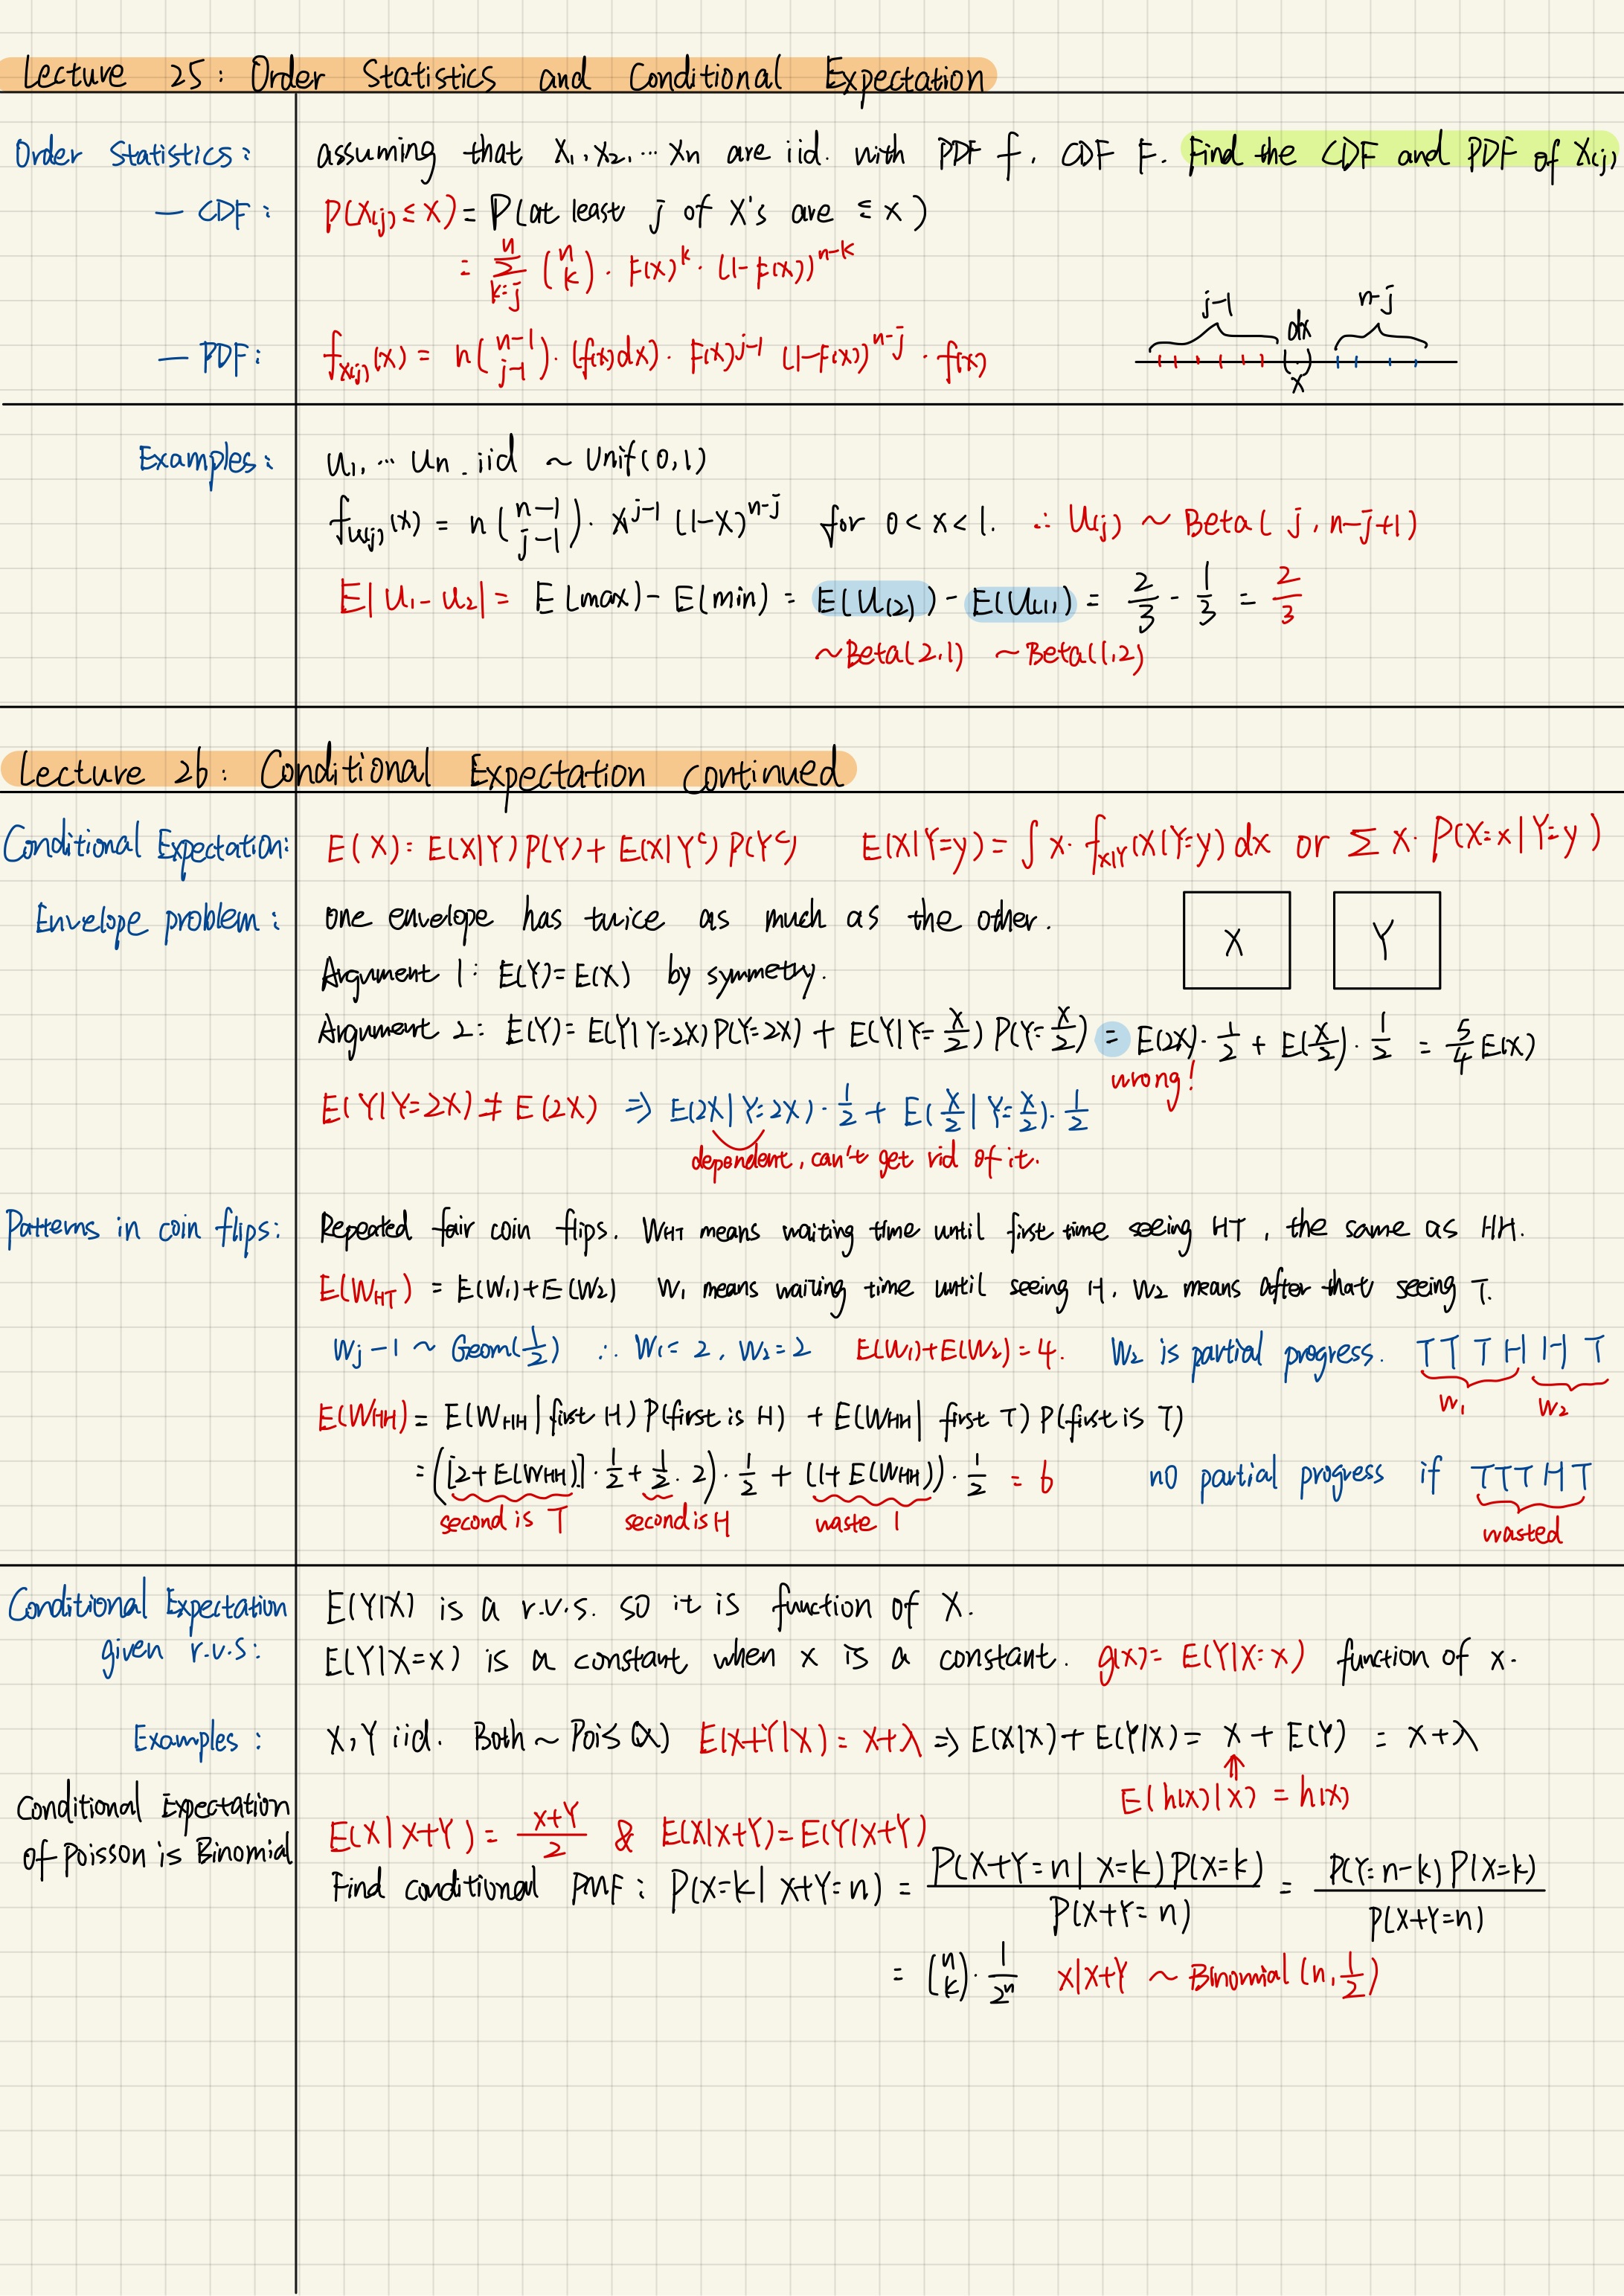 Lecture 25: Order Statistics and Conditional Expectation
Order Statistics: assuming that X₁, X₂, ⋯ Xn are iid. with PDF f. CDF F. Find the CDF and PDF of X(j)
— CDF: P(X(j) ≤ x) = P(at least j of X's are ≤ x)
= Σ_{k=j}^{n} (n k) · F(x)^k · (1-F(x))^{n-k}
j-1 dx n-j
— PDF: f_{X(j)}(x) = n (n-1 j-1) · (f(x)dx) · F(x)^{j-1} (1-F(x))^{n-j} · f(x)
x
Examples: U₁, ⋯ Un. iid ~ Unif(0,1)
f_{U(j)}(x) = n (n-1 j-1) · X^{j-1} (1-X)^{n-j} for 0<x<1. ∴ U(j) ~ Beta(j, n-j+1)
E|U₁-U₂| = E(max) - E(min) = E(U(2)) - E(U(1)) = 2/3 - 1/3 = 2/3
~Beta(2,1) ~Beta(1,2)
Lecture 26: Conditional Expectation continued
Conditional Expectation: E(X) = E(X|Y)P(Y) + E(X|Y^c)P(Y^c) E(X|Y=y) = ∫ x· f_{X|Y}(X|Y=y)dx or Σ X· P(X=x|Y=y)
Envelope problem: one envelope has twice as much as the other.
X Y
Argument 1: E(Y)=E(X) by symmetry.
Argument 2: E(Y)= E(Y|Y=2X)P(Y=2X) + E(Y|Y=X/2) P(Y=X/2) = E(2X)·1/2 + E(X/2)·1/2 = 5/4 E(X)
wrong!
E(Y|Y=2X) ≠ E(2X) ⇒ E(2X|Y=2X)·1/2 + E(X/2|Y=X/2)·1/2
dependent, can't get rid of it.
Patterns in coin flips: Repeated fair coin flips. W_HT means waiting time until first time seeing HT, the same as HH.
E(W_HT) = E(W₁)+E(W₂) W₁ means waiting time until seeing H, W₂ means after that seeing T.
Wj-1 ~ Geom(1/2) ∴ W₁=2, W₂=2 E(W₁)+E(W₂)=4. W₂ is partial progress. T T T H H T
W₁ W₂
E(W_HH) = E(W_HH|first H)P(first is H) + E(W_HH| first T)P(first is T)
= ([2+E(W_HH)]·1/2 + 1/2·2)·1/2 + (1+E(W_HH))·1/2 = 6 no partial progress if TTTHT
second is T second is H waste 1 wasted
Conditional Expectation given r.v.s: E(Y|X) is a r.v.s. so it is function of X.
E(Y|X=x) is a constant when x is a constant. g(x)= E(Y|X=x) function of x.
Examples: X,Y iid. Both ~ Pois(λ) E(X+Y|X) = X+λ ⇒ E(X|X)+E(Y|X) = X + E(Y) = X+λ
↑
E(h(x)|x) = h(x)
Conditional Expectation of Poisson is Binomial
E(X|X+Y) = (X+Y)/2 & E(X|X+Y)=E(Y|X+Y)
Find conditional PMF: P(X=k|X+Y=n) = P(X+Y=n|X=k)P(X=k) / P(X+Y=n) = P(Y=n-k)P(X=k) / P(X+Y=n)
= (n k) · 1/2^n X|X+Y ~ Binomial(n, 1/2)